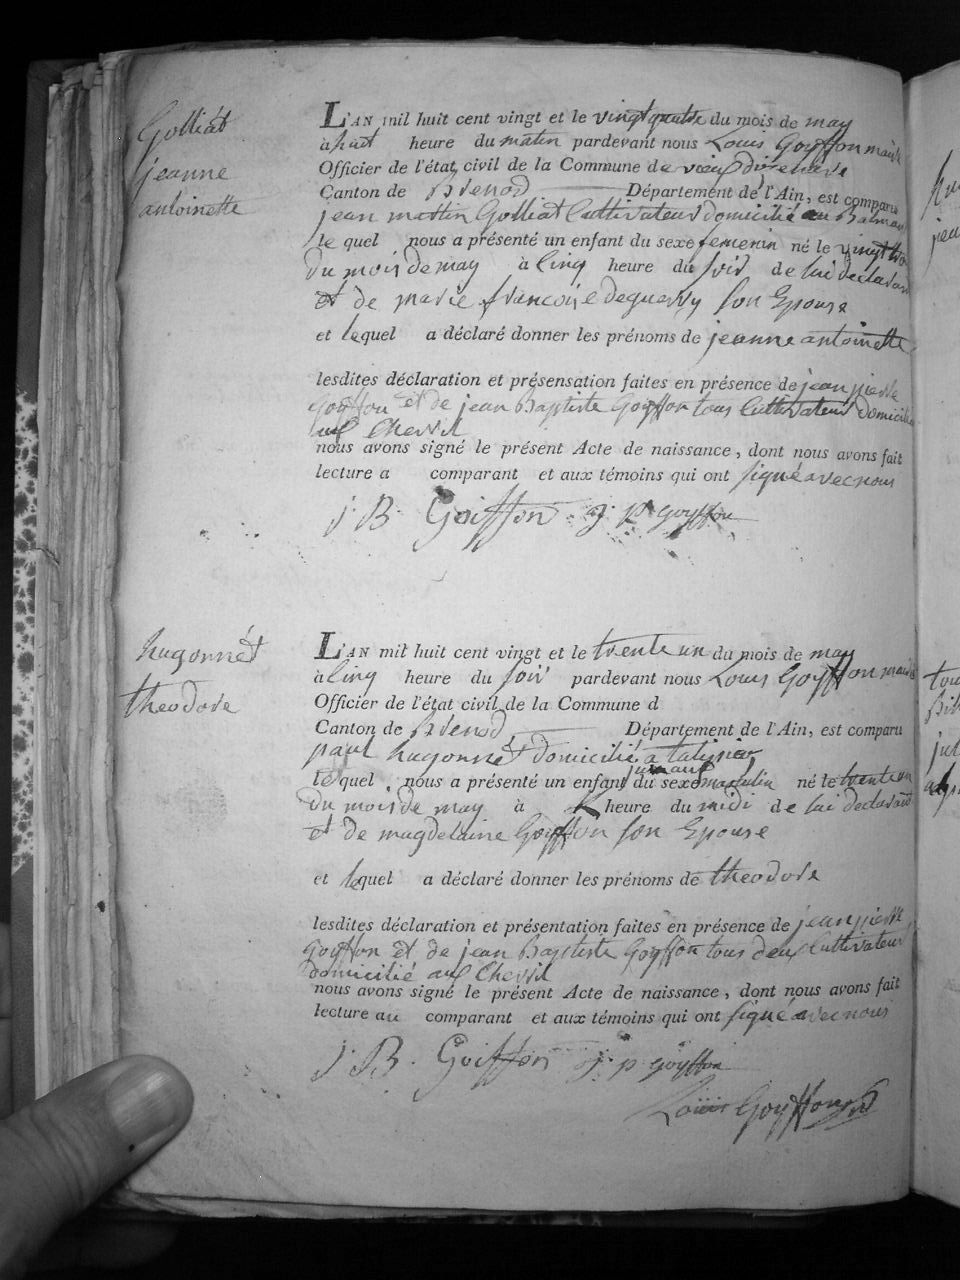 Golliat
jeanne
antoinette
L'AN mil huit cent vingt et le vingt quatre du mois de may
à huit heure du matin pardevant nous Louis Goyffon maire
Officier de l'état civil de la Commune de vieux d'izenave
Canton de Brenod Département de l'Ain, est comparu
jean martin Golliat Cultivateur domicilié au Balmay
le quel nous a présenté un enfant du sexe femenin né le vingt trois
du mois de may à Cinq heure du soir de lui declarant
et de marie françoise deguerry son Epouse
et lequel a déclaré donner les prénoms de jeanne antoinette
lesdites déclaration et présensation faites en présence de jean pierre
goyffon et de jean Baptiste Goyffon tous Cultivateur domicilié
aux Chevril
nous avons signé le présent Acte de naissance, dont nous avons fait
lecture a comparant et aux témoins qui ont signé avec nous
j. B. Goiffon j. p. goyffon
hugonnet
theodore
L'AN mil huit cent vingt et le trente un du mois de may
à Cinq heure du soir pardevant nous Louis Goyffon maire
Officier de l'état civil de la Commune d
Canton de Brenod Département de l'Ain, est comparu
paul hugonnet domicilié a talipiat
jumaux
le quel nous a présenté un enfant du sexe masculin né le trente un
du mois de may à heure du midi de lui declarant
et de magdelaine Goyffon son Epouse
et lequel a déclaré donner les prénoms de theodore
lesdites déclaration et présentation faites en présence de jean pierre
goyffon et de jean Baptiste Goyffon tous deux Cultivateur
domicilié aux Chevril
nous avons signé le présent Acte de naissance, dont nous avons fait
lecture au comparant et aux témoins qui ont signé avec nous
j. B. Goiffon j. p. goyffon
Louis Goyffon